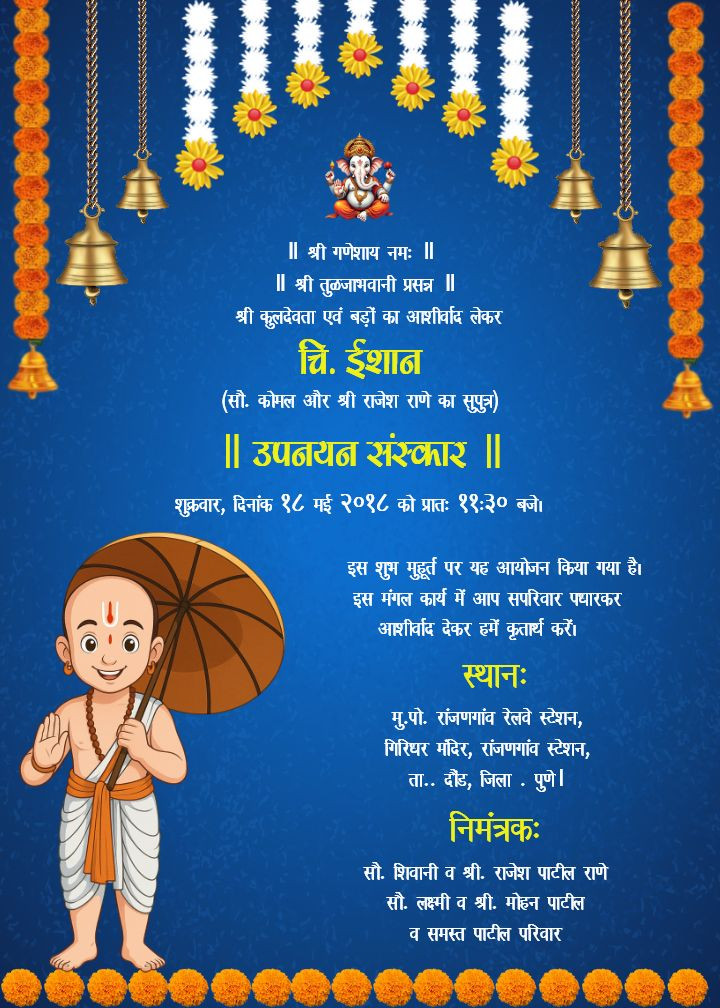 ॥ श्री गणेशाय नमः ॥
॥ श्री तुळजाभवानी प्रसन्न ॥
श्री कुलदेवता एवं बड़ों का आशीर्वाद लेकर
चि. ईशान
(सौ. कोमल और श्री राजेश राणे का सुपुत्र)
॥ उपनयन संस्कार ॥
शुक्रवार, दिनांक १८ मई २०१८ को प्रातः ११:३० बजे।
इस शुभ मुहूर्त पर यह आयोजन किया गया है।
इस मंगल कार्य में आप सपरिवार पधारकर
आशीर्वाद देकर हमें कृतार्थ करें।
स्थानः
मु.पो. रांजणगांव रेलवे स्टेशन,
गिरिधर मंदिर, रांजणगांव स्टेशन,
ता.. दौंड, जिला . पुणे।
निमंत्रकः
सौ. शिवानी व श्री. राजेश पाटील राणे
सौ. लक्ष्मी व श्री. मोहन पाटील
व समस्त पाटील परिवार